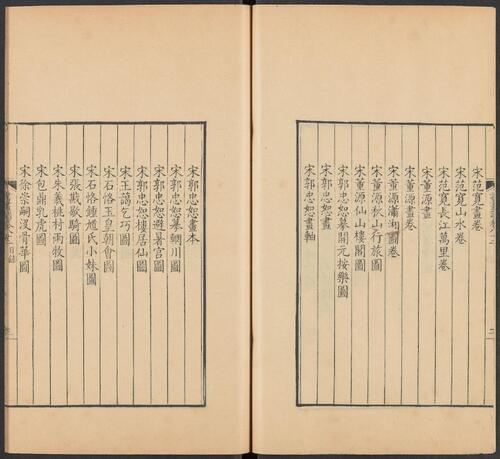 宋范寬畫卷
宋范寬山水卷
宋范寬長江萬里卷
宋董源畫
宋董源畫卷
宋董源瀟湘圖卷
宋董源秋山行旅圖
宋董源仙山樓閣圖
宋郭忠恕摹開元按樂圖
宋郭忠恕畫
宋郭忠恕畫軸
宋郭忠恕畫本
宋郭忠恕摹輞川圖
宋郭忠恕避暑宮圖
宋郭忠恕樓居仙圖
宋王藹乞巧圖
宋石恪玉皇朝會圖
宋石恪鍾馗氏小妹圖
宋張戡獵騎圖
宋朱羲桃村雨牧圖
宋包鼎乳虎圖
宋徐崇嗣沒骨華圖